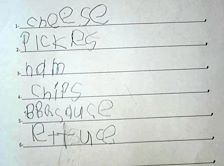 1. cheese
2. PICKES
3. ham
4. chips
5. BBQsauce
6. lettuce